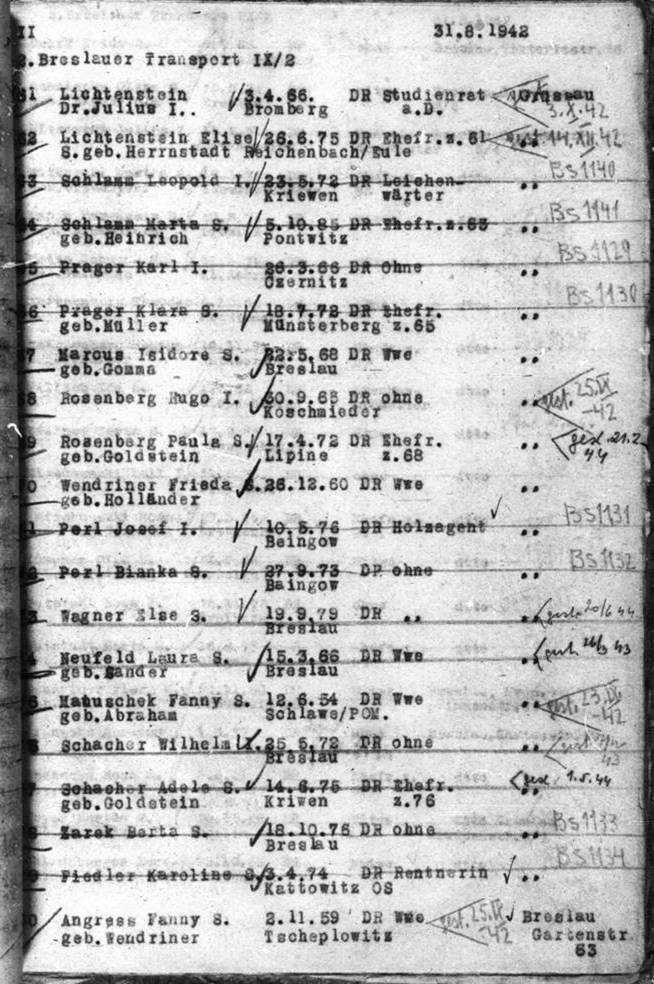 II 31.8.1942
2.Breslauer Transport IX/2
61 Lichtenstein 3.4.66. DR Studienrat Grüssau
Dr.Julius I.. Bromberg a.D. 3.X.42
62 Lichtenstein Elise 26.6.75 DR Ehefr.z.61 gest.14.XII.42
S.geb.Herrnstadt Reichenbach/Eule
63 Schlamm Leopold I. 23.5.72 DR Leichen- „ Bs1140
Kriewen wärter
64 Schlamm Marta S. 5.10.85 DR Ehefr.z.63 „ Bs1141
geb.Heinrich Pontwitz
65 Prager Karl I. 26.3.66 DR Ohne „ Bs1129
Czernitz
66 Prager Klara S. 18.7.72 DR Ehefr. „ Bs1130
geb.Müller Münsterberg z.65
67 Marcus Isidore S. 22.5.68 DR Wwe „
geb.Gomma Breslau
68 Rosenberg Hugo I. 30.9.65 DR ohne „ gest. 25.IX
Koschmieder -42
69 Rosenberg Paula S. 17.4.72 DR Ehefr. „ gest.21.2
geb.Goldstein Lipine z.68 44
0 Wendriner Frieda S.26.12.60 DR Wwe „
geb.Holländer
1 Perl Josef I. 10.5.76 DR Holzagent „ Bs1131
Beingow
2 Perl Bianka S. 27.9.73 DR ohne „ Bs1132
Baingow
3 Wagner Else S. 19.9.79 DR „ „ gest. 20/6 44
Breslau
4 Neufeld Laura S. 15.3.66 DR Wwe „ gest. 26/3 43
geb.Sander Breslau
5 Matuschek Fanny S. 12.6.54 DR Wwe „ gest. 23.IX.
geb.Abraham Schlawe/POM. -42
6 Schacher Wilhelm I.25 5.72 DR ohne „ gest. 43
Breslau
7 Schacher Adele S. 14.6.75 DR Ehefr. „ gest. 1.5.44
geb.Goldstein Kriwen z.76
8 Zarek Berta S. 18.10.76 DR ohne „ Bs1133
Breslau
9 Fiedler Karoline S. 3.4.74 DR Rentnerin „ Bs1134
Kattowitz OS
0 Angress Fanny S. 2.11.59 DR Wwe gest. 25.IX Breslau
geb.Wendriner Tscheplowitz -42 Gartenstr
63